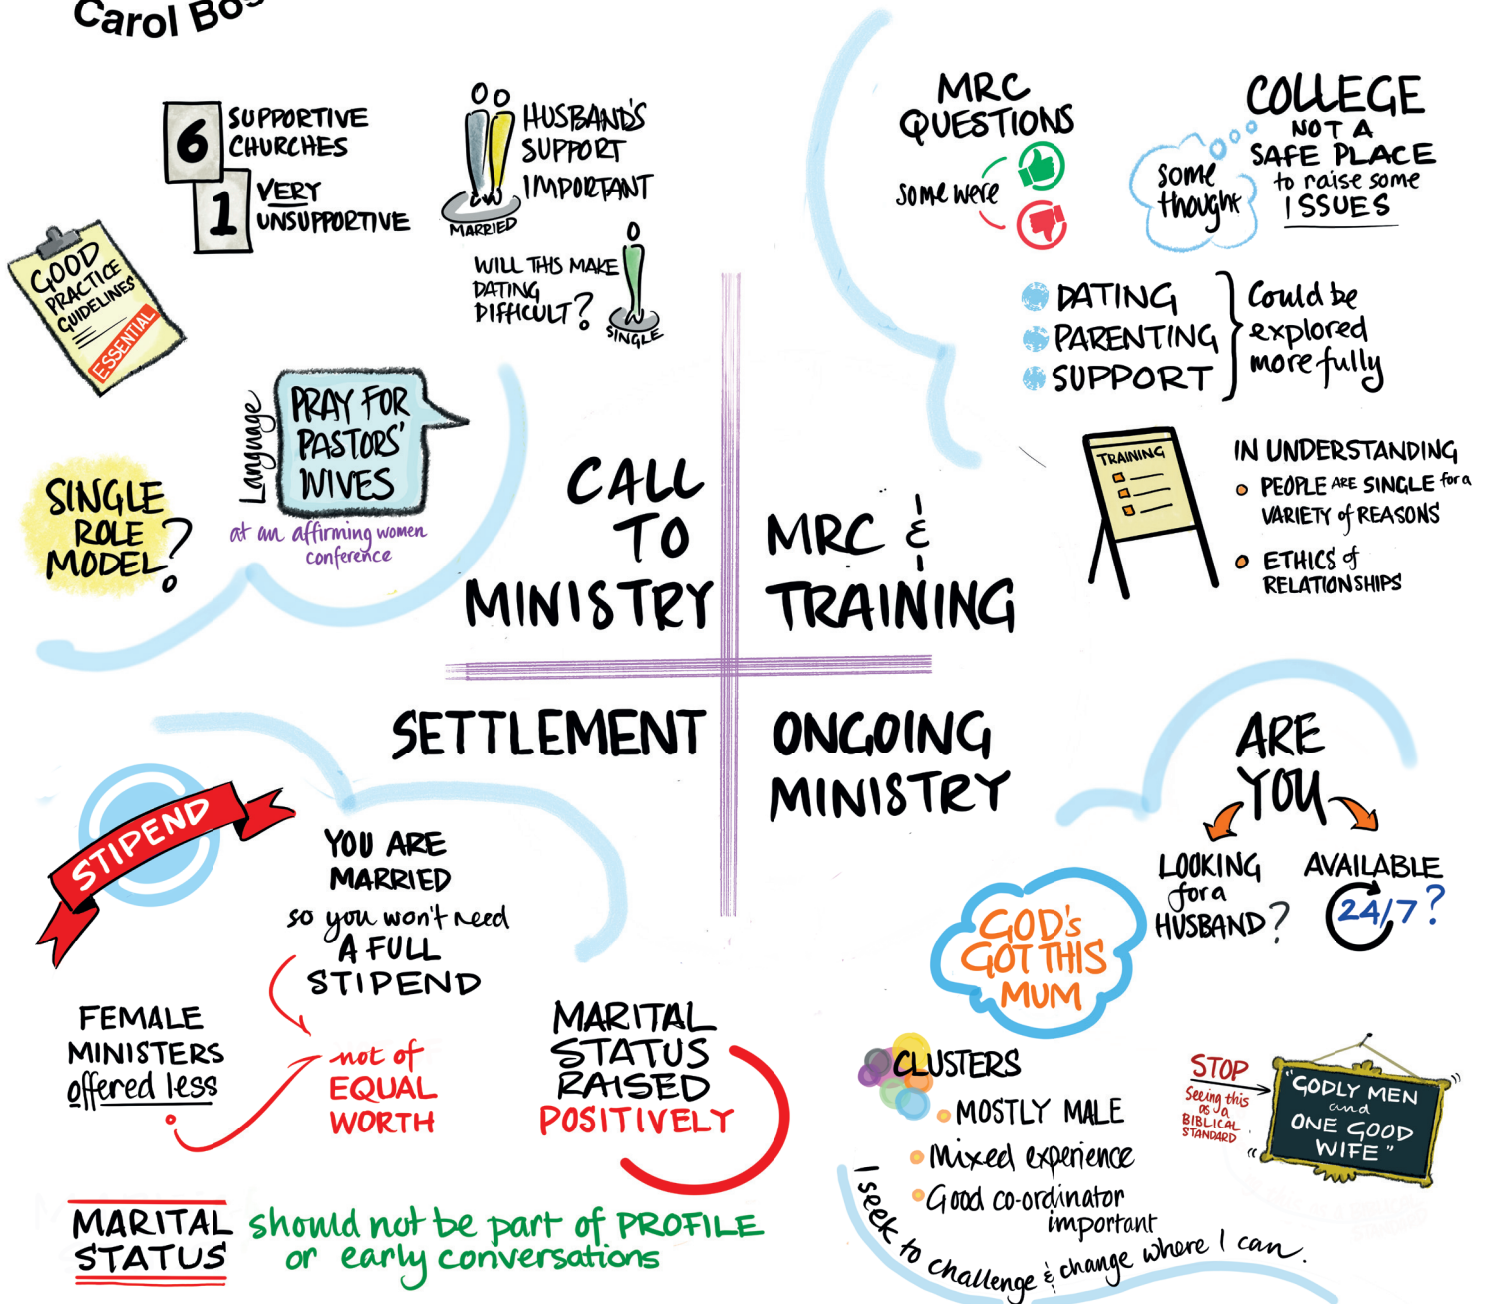 Carol
6
SUPPORTIVE
CHURCHES
1
VERY
UNSUPPORTIVE
HUSBAND'S
SUPPORT
IMPORTANT
MARRIED
WILL THIS MAKE
DATING
DIFFICULT?
SINGLE
GOOD
PRACTICE
GUIDELINES
ESSENTIAL
Language
PRAY FOR
PASTORS'
WIVES
at an affirming women
conference
SINGLE
ROLE
MODEL?
CALL
TO
MINISTRY
MRC
QUESTIONS
some were
COLLEGE
NOT A
SAFE PLACE
to raise some
ISSUES
some
thought
DATING
PARENTING
SUPPORT
Could be
explored
more fully
TRAINING
IN UNDERSTANDING
PEOPLE ARE SINGLE for a
VARIETY of REASONS
ETHICS of
RELATIONSHIPS
MRC &
TRAINING
SETTLEMENT
STIPEND
YOU ARE
MARRIED
so you won't need
A FULL
STIPEND
FEMALE
MINISTERS
offered less
not of
EQUAL
WORTH
MARITAL
STATUS
RAISED
POSITIVELY
MARITAL
STATUS
should not be part of PROFILE
or early conversations
ONGOING
MINISTRY
ARE
YOU
LOOKING
for a
HUSBAND?
AVAILABLE
24/7?
GOD's
GOT THIS
MUM
CLUSTERS
MOSTLY MALE
Mixed experience
Good co-ordinator
important
STOP
Seeing this
as a
BIBLICAL
STANDARD
"GODLY MEN
and
ONE GOOD
WIFE"
I seek to challenge & change where I can.